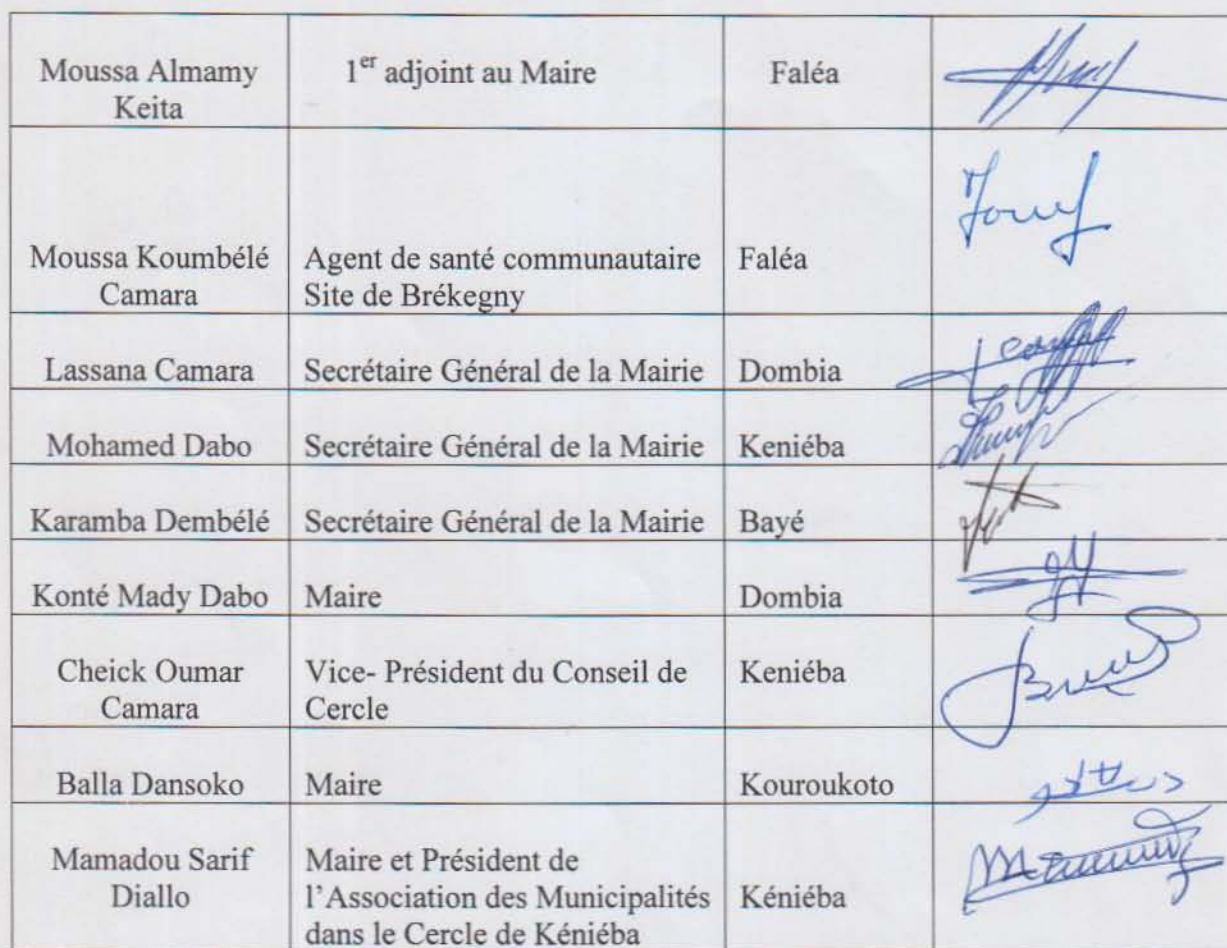 Moussa Almamy Keita
1er adjoint au Maire
Faléa
Moussa Koumbélé Camara
Agent de santé communautaire
Site de Brékegny
Faléa
Lassana Camara
Secrétaire Général de la Mairie
Dombia
Mohamed Dabo
Secrétaire Général de la Mairie
Keniéba
Karamba Dembélé
Secrétaire Général de la Mairie
Bayé
Konté Mady Dabo
Maire
Dombia
Cheick Oumar
Camara
Vice- Président du Conseil de
Cercle
Keniéba
Balla Dansoko
Maire
Kouroukoto
Mamadou Sarif
Diallo
Maire et Président de
l'Association des Municipalités
dans le Cercle de Kéniéba
Kéniéba